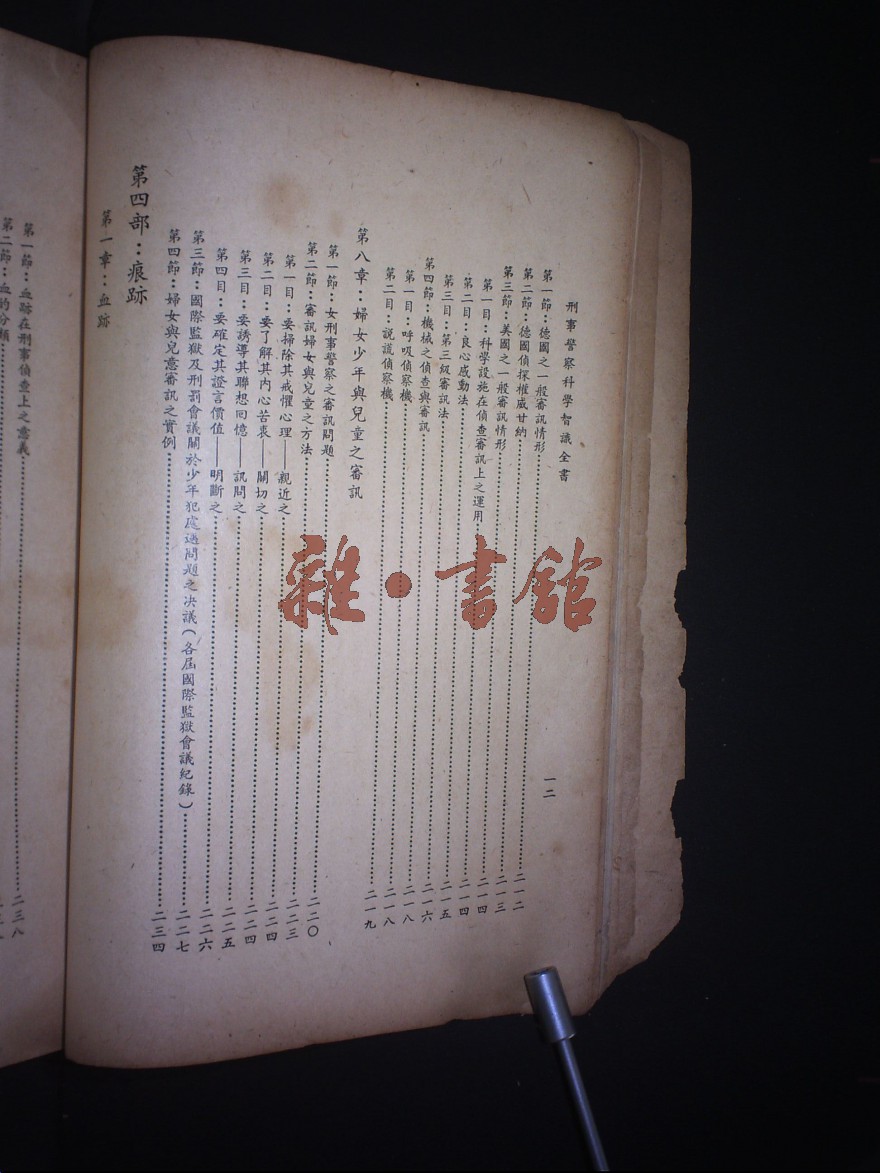 刑事警察科學智識全書
一二
第一節：德國之一般審訊情形………二一二
第二節：德國偵探權威甘納………二一三
第三節：美國之一般審訊情形………二一四
第一目：科學設施在偵查審訊上之運用………二一四
第二目：良心感動法………二一五
第三目：第三級審訊法………二一六
第四節：機械之偵查與審訊………二一八
第一目：呼吸偵察機………二一八
第二目：說謊偵察機………二一九
第八章：婦女少年與兒童之審訊
第一節：女刑事警察之審訊問題………二二〇
第二節：審訊婦女與兒童之方法………二二三
第一目：要掃除其戒懼心理——親近之………二二四
第二目：要了解其內心苦衷——關切之………二二四
第三目：要誘導其聯想回憶——訊問之………二二五
第四目：要確定其證言價值——明斷之………二二六
第三節：國際監獄及刑罰會議關於少年犯處遇問題之決議(各屆國際監獄會議紀錄)………二二七
第四節：婦女與兒意審訊之實例………二三四
第四部：痕跡
第一章：血跡
第一節：血跡在刑事偵查上之意義………二三八
第二節：血的分類………
雜·書館